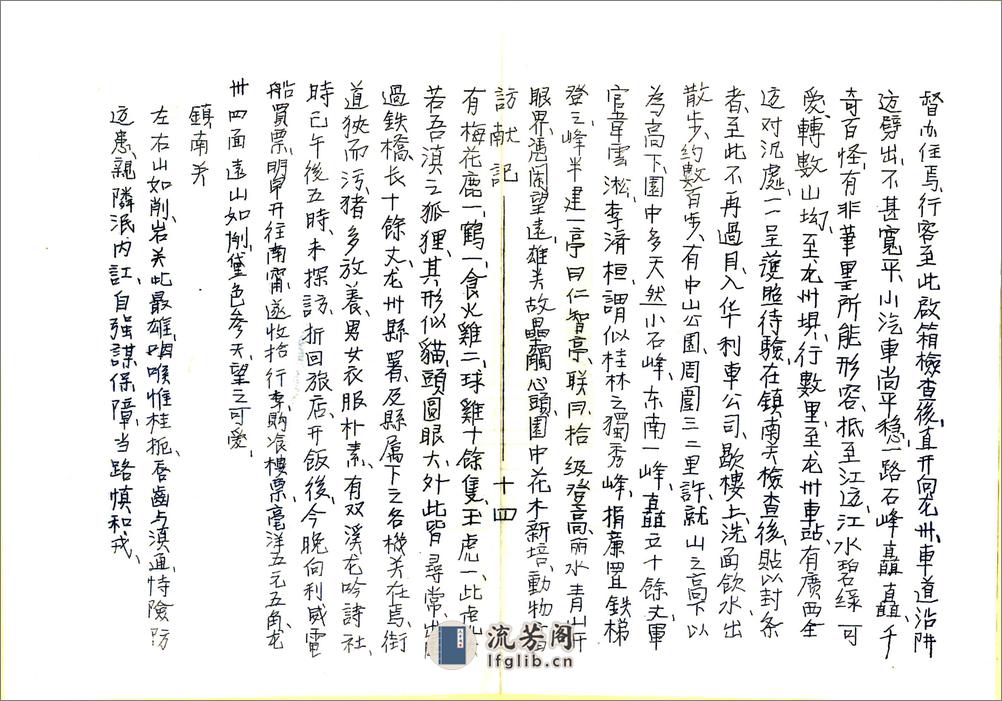 督办住焉、行客至此啟箱檢查後、直开向龙州、車道沿阱
边劈出、不甚寬平、小汽車尚平穩、一路石峰直矗、千
奇百怪、有非筆墨所能形容、抵至江边、江水碧綠、可
愛、轉數山坳、至龙州埧、行數里、至龙州車站、有廣西全
边对汛處、一一呈護照待驗、在鎮南关檢查後、貼以封条
者、至此不再過目、入华利車公司、歇樓上、洗面飲水、出
散步、约數百步、有中山公園、周圍三二里許、就山之高下以
為高下、園中多天然小石峰、东南一峰、直矗立十餘丈、軍
官韋雲淞、李濟桓、謂似桂林之獨秀峰、捐廉置鉄梯
登之、峰半建一亭曰仁智亭、联曰、拾级登高、丽水青山
眼界、憑闌望遠、雄关故壘觸心頭、園中花木新培、動物
訪献記 十四
有梅花鹿一、鶴一、食火雞二、球雞十餘隻、玉虎一、此虎
若吾滇之狐狸、其形似貓、頭圆眼大、外此皆尋常、出
過鉄橋、長十餘丈、龙州縣署、及縣属下之各機关在焉、街
道狹而污、猪多放養、男女衣服朴素、有双溪龙吟詩社、
時已午後五時、未探訪、折回旅店、开飯後、今晚向利威電
船買票、明早开往南甯、遂收拾行李、購飡樓票、毫洋五元五角、龙
州四面遠山如削、黛色参天、望之可愛、
鎮南关
左右山如削、岩关此最雄、咽喉惟桂扼、唇齒与滇通、恃險防
边患、親隣泯内訌、自强謀保障、当路慎和戎、
流芳阁
lfglib.cn